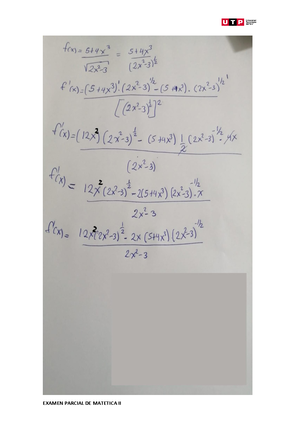 UTP
f(x) = 5+4x³ / √(2x²-3) = 5+4x³ / (2x²-3)^½
f'(x) = (5+4x³)' (2x²-3)^½ - (5+4x³) · (2x²-3)^½' / [(2x²-3)^½]²
f'(x) = (12x²) (2x²-3)^½ - (5+4x³) ½ (2x²-3)^-½ · 4x / (2x²-3)
f'(x) = 12x² (2x²-3)^½ - 2(5+4x³)(2x²-3)^-½ · x / 2x²-3
f'(x) = 12x² (2x²-3)^½ - 2x (5+4x³) (2x²-3)^-½ / 2x²-3
EXAMEN PARCIAL DE MATETICA II